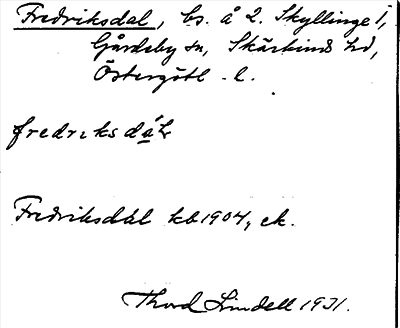 Fredriksdal, bs. å 2. Skyllinge 1,
Gårdeby sn, Skärkinds hd,
Östergötl. l.
fredriksdál
Fredriksdal kb 1904, ek.
Thord Lindell 1931.